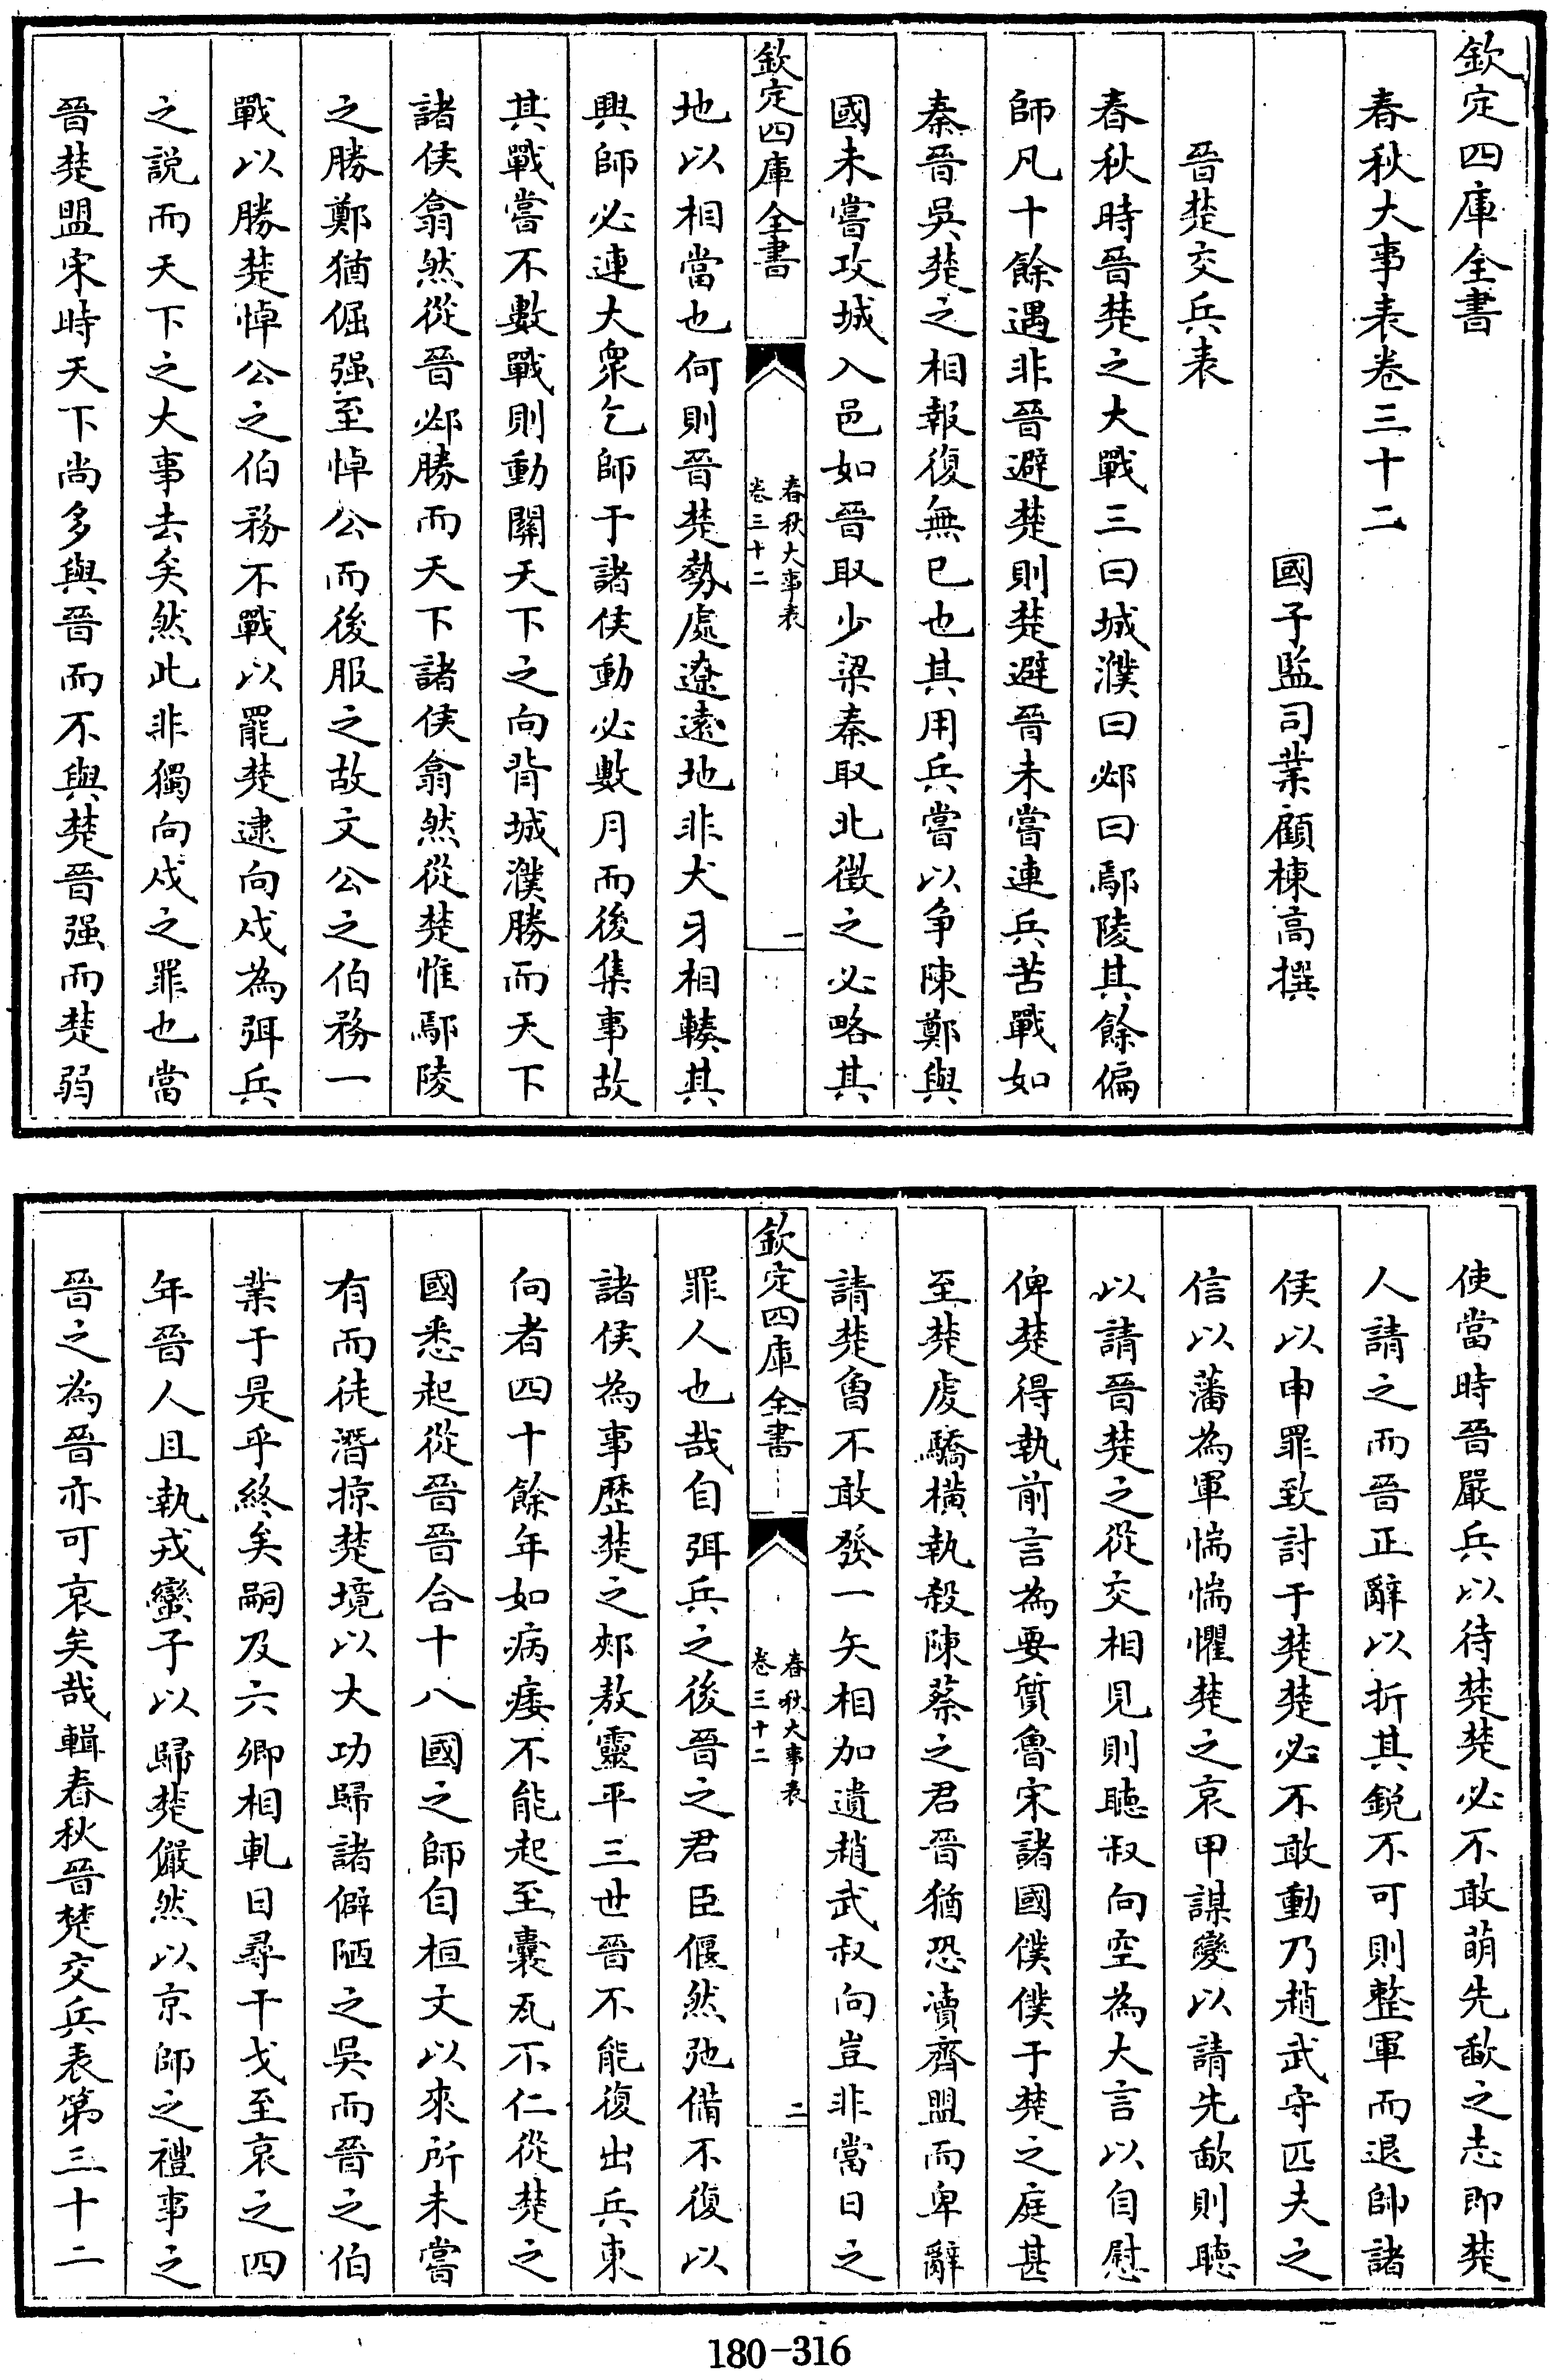 欽定四庫全書
春秋大事表卷三十二
國子監司業顧棟高撰
晉楚交兵表
春秋時晉楚之大戰三曰城濮曰邲曰鄢陵其餘偏
師凡十餘遇非晉避楚則楚避晉未嘗連兵苦戰如
秦晉吳楚之相報復無已也其用兵嘗以争陳鄭與
國未嘗攻城入邑如晉取少梁秦取北徵之必略其
欽定四庫全書
春秋大事表
卷三十二
一
地以相當也何則晉楚勢處遼逺地非犬牙相轃其
興師必連大衆乞師于諸侯動必數月而後集事故
其戰嘗不數戰則動關天下之向背城濮勝而天下
諸侯翕然從晉邲勝而天下諸侯翕然從楚惟鄢陵
之勝鄭猶倔强至悼公而後服之故文公之伯務一
戰以勝楚悼公之伯務不戰以罷楚逮向戌為弭兵
之説而天下之大事去矣然此非獨向戌之罪也當
晉楚盟宋時天下尚多與晉而不與楚晉强而楚弱
使當時晉嚴兵以待楚楚必不敢萌先歃之志即楚
人請之而晉正辭以折其鋭不可則整軍而退帥諸
侯以申罪致討于楚楚必不敢動乃趙武守匹夫之
信以藩為軍惴惴懼楚之衷甲謀變以請先歃則聽
以請晉楚之從交相見則聽叔向空為大言以自慰
俾楚得執前言為要質魯宋諸國僕僕于楚之庭甚
至楚虔驕横執殺陳蔡之君晉猶恐凟齊盟而卑辭
請楚曾不敢發一矢相加遺趙武叔向豈非當日之
欽定四庫全書
春秋大事表
卷三十二
二
罪人也哉自弭兵之後晉之君臣偃然弛備不復以
諸侯為事歴楚之郟敖靈平三世晉不能復出兵東
向者四十餘年如病痿不能起至囊瓦不仁從楚之
國悉起從晉晉合十八國之師自桓文以來所未嘗
有而徒潛掠楚境以大功歸諸僻陋之吳而晉之伯
業于是乎終矣嗣及六卿相軋日尋干戈至哀之四
年晉人且執戎蠻子以歸楚儼然以京師之禮事之
晉之為晉亦可哀矣哉輯春秋晉楚交兵表第三十二
180-316